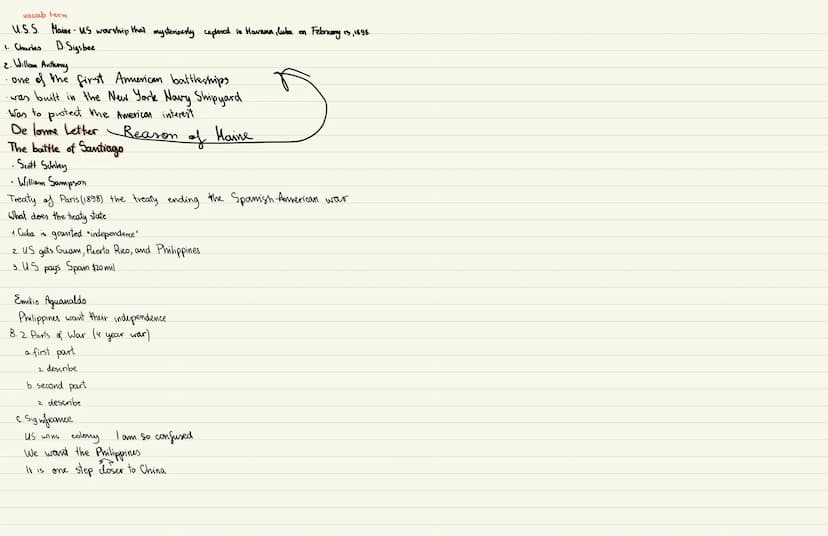 vocab term
U.S.S. Maine - US warship that mysteriously exploded in Havana, Cuba on February 15, 1898
1. Charles D. Sigsbee
2. William Anthony
· one of the first American battleships
· was built in the New York Navy Shipyard
Was to protect the American interest
De lome Letter Reason of Maine
The battle of Santiago
· Scott Schley
· William Sampson
Treaty of Paris (1898) the treaty ending the Spanish-American war
What does the treaty state
1. Cuba is granted "independence"
2. US gets Guam, Puerto Rico, and Philippines
3. US pays Spain $20 mil
Emilio Aguanaldo
Philippines want their independence
B. 2 Parts of War (4 year war)
a. first part
2. describe
b. second part
2. describe
C. Significance
US wins colony I am so confused
We want the Philippines
It is one step closer to China